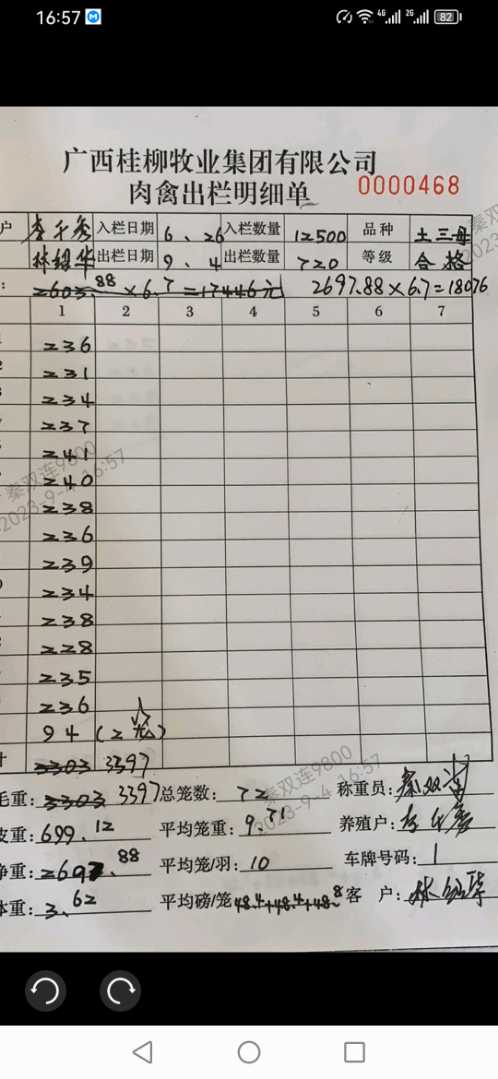 16:57 4G 2G 82
广西桂柳牧业集团有限公司
肉禽出栏明细单 0000468
户 入栏日期 6、26 入栏数量 12500 品种 土三母
出栏日期 9、4 出栏数量 720 等级 合格
: 2603.88×6.7=17446元 2697.88×6.7=18076
1 2 3 4 5 6 7
236
231
234
237
241
240
238
236
239
234
238
228
235
236
94 (2
3303 3397
毛重: 3303 3397 总笼数: 72 称重员:
皮重: 699.12 平均笼重: 9.71 养殖户:
净重: 2697.88 平均笼/羽: 10 车牌号码: 1
体重: 3.62 平均磅/笼 48.4+48.4+48.8 客 户:
秦双连9800
2023-9-4 16:57
秦双连9800
2023-9-4 16:57
秦双
2023